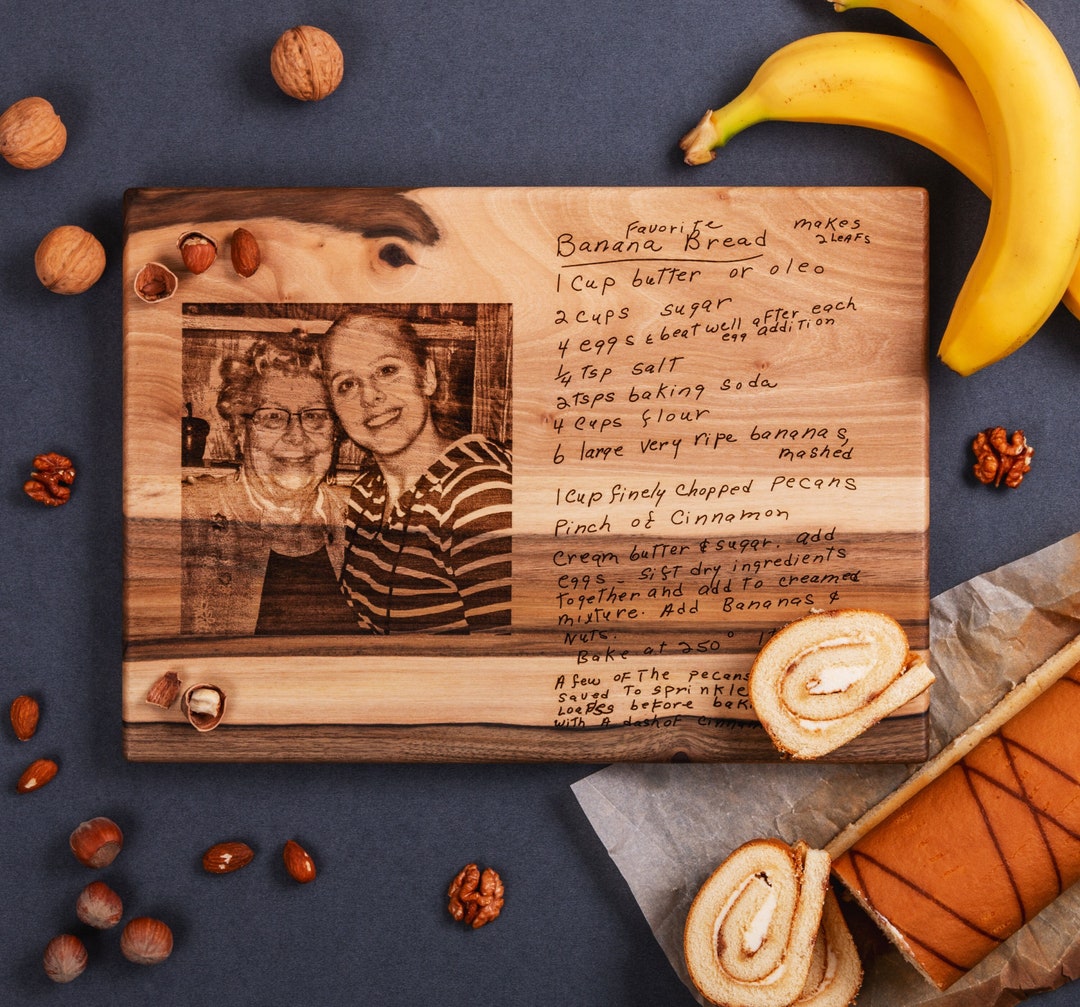 Favorite makes
Banana Bread 2 LeAFs
1 Cup butter or oleo
2 cups sugar
4 eggs & beat well after each
egg addition
1/4 Tsp salt
2 Tsps baking soda
4 cups flour
6 large very ripe bananas,
mashed
1 Cup finely chopped pecans
Pinch of Cinnamon
Cream butter & sugar. add
eggs - Sift dry ingredients
together and add To creamed
mixture. Add Bananas &
Nuts.
Bake at 250°
A few of The pecans
saved To sprinkle
before
with A dash of